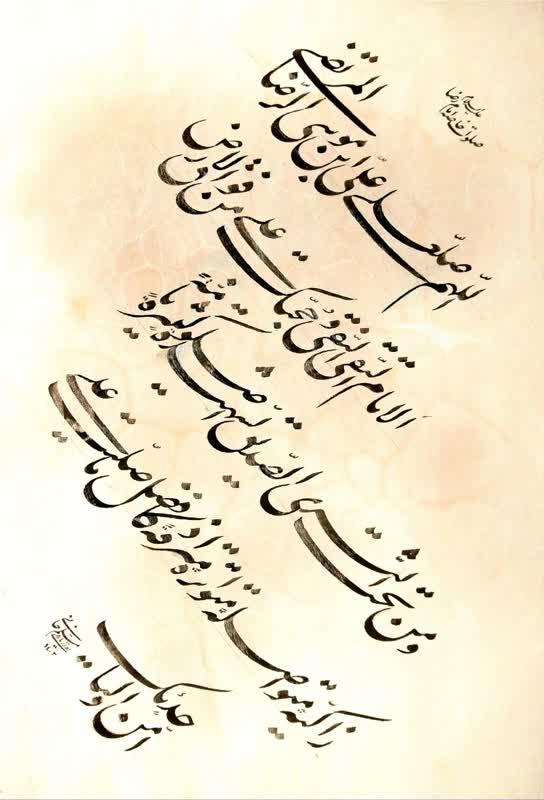 صلوات خاصه امام رضا
علیه السلام
اللّهم صلّ علی علیّ ابن موسی الرضا المرتضی
الامام التقی النقی و حجّتک علی من فوق الارض
ومن تحت الثری الصّدیق الشهید صلوة کثیرةً تامّةً
زاکیةً متواصلةً متواترةً مترادفةً کافضل ما صلّیت علی
احدٍ من اولیائک